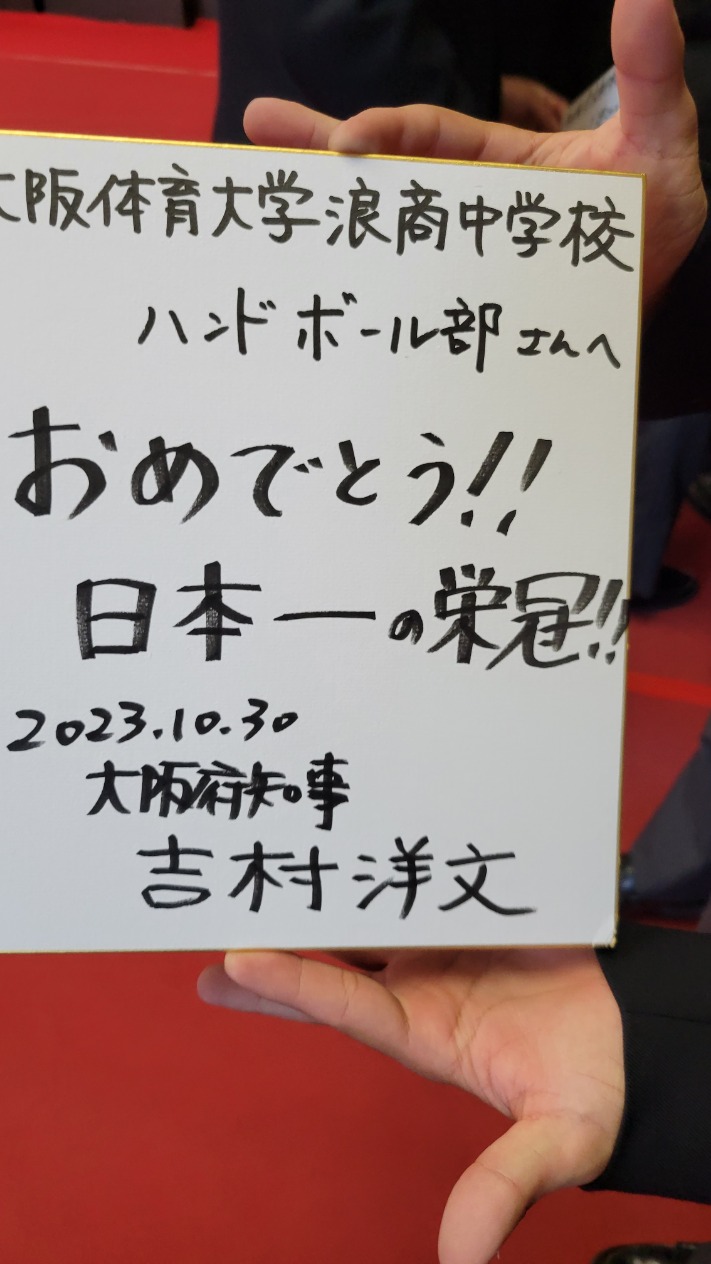 大阪体育大学浪商中学校
ハンドボール部さんへ
おめでとう!!
日本一の栄冠!!
2023.10.30
大阪府知事
吉村洋文